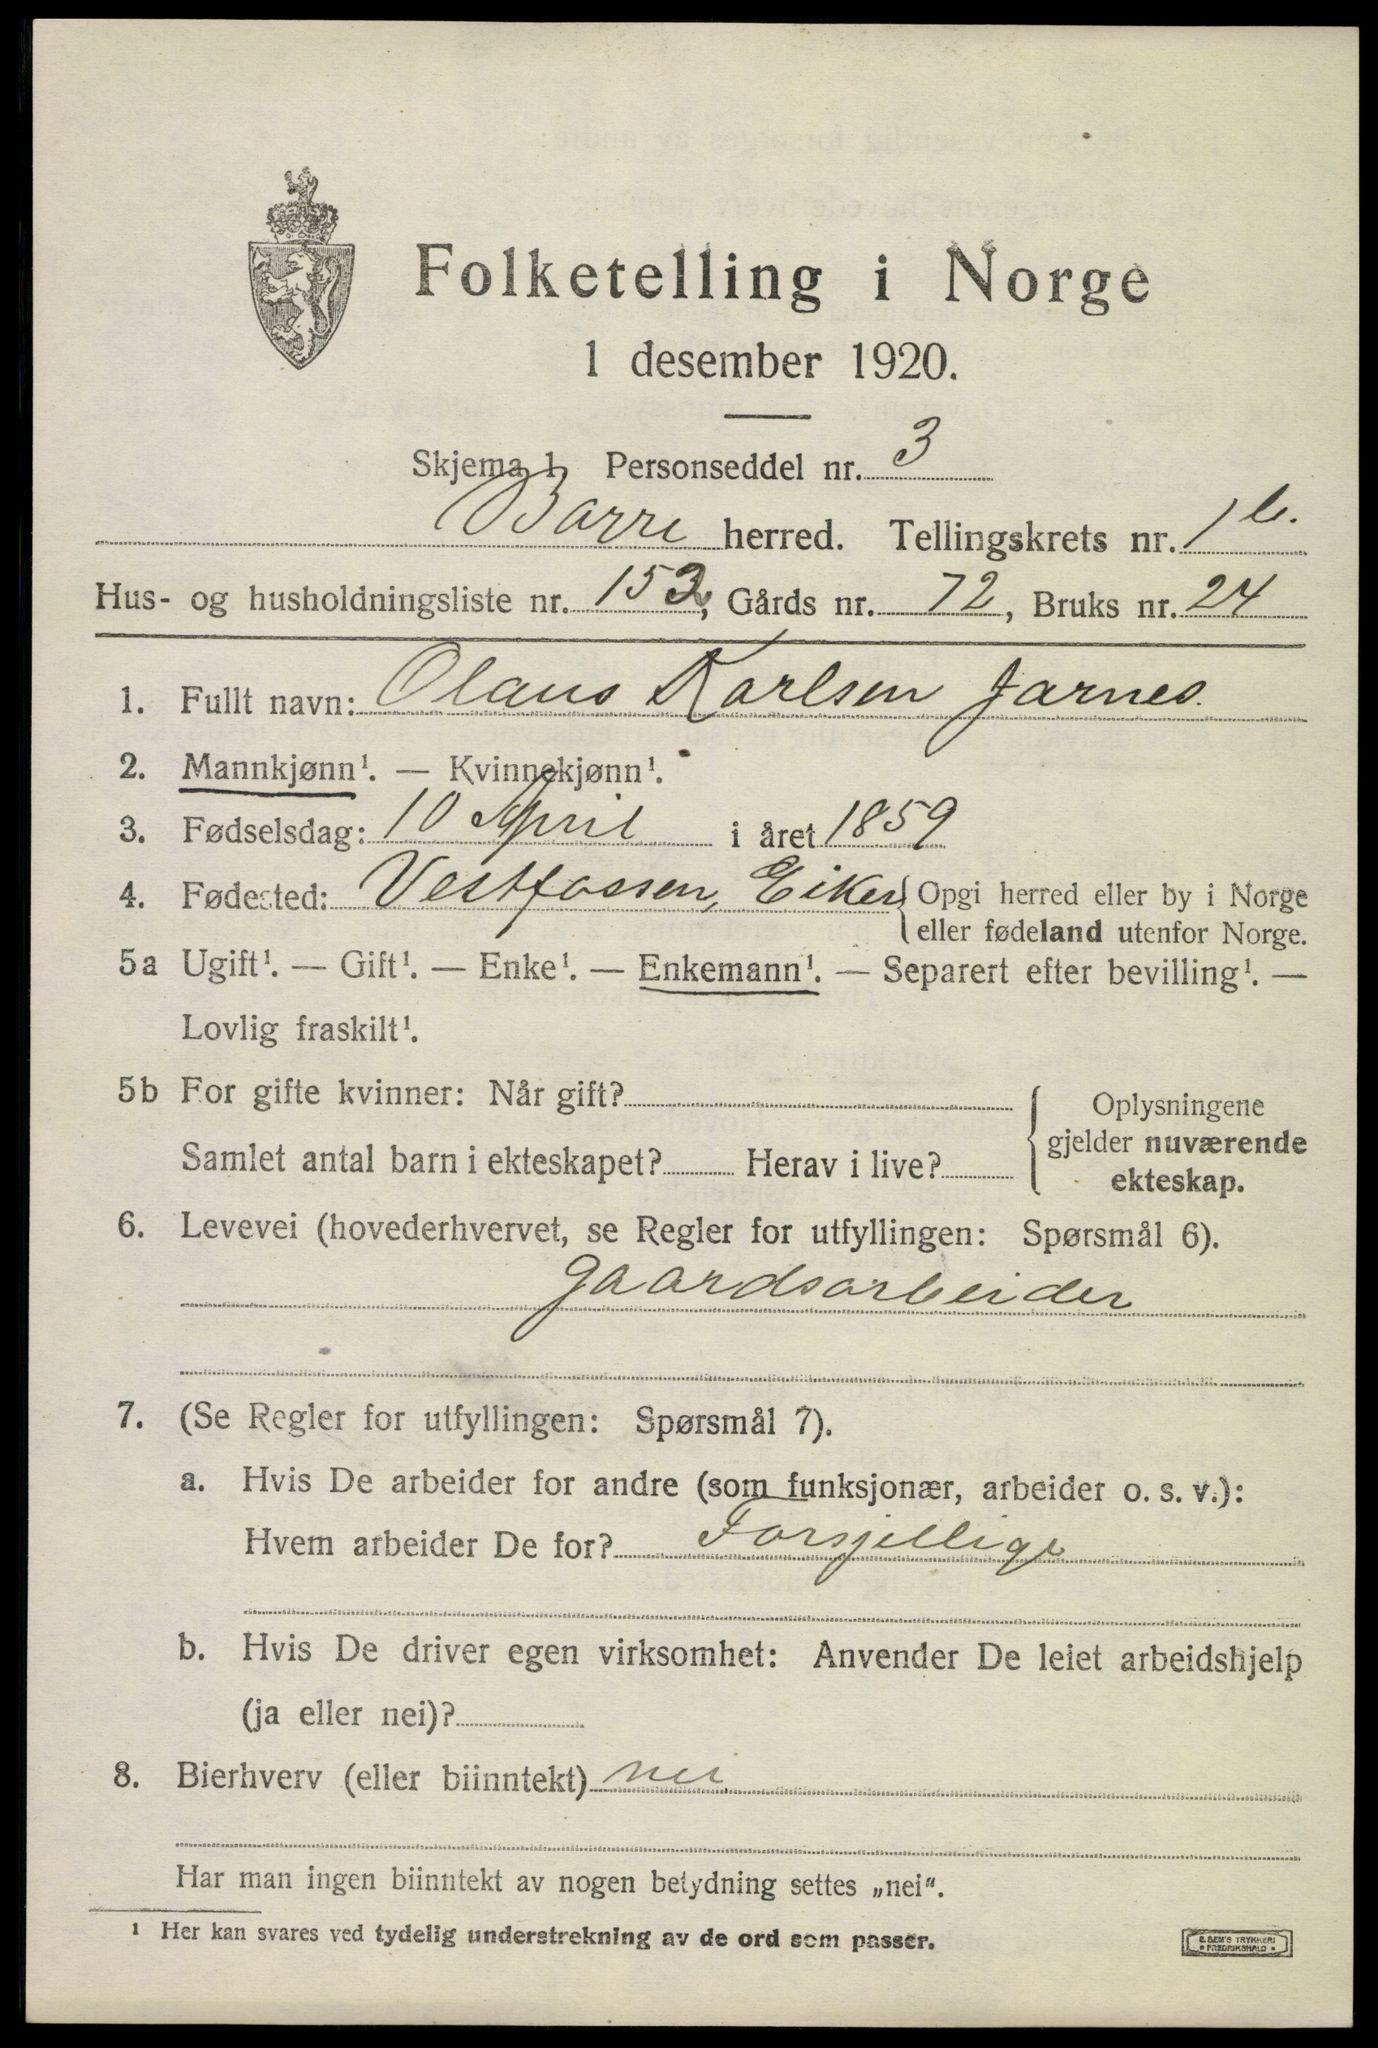 Folketelling i Norge
1 desember 1920.
Skjema 1 Personseddel nr. 3
Borre herred. Tellingskrets nr. 1 b.
Hus- og husholdningsliste nr. 153, Gårds nr. 72, Bruks nr. 24
1. Fullt navn: Olaus Karlsen Jarnes.
2. Mannkjønn¹. — Kvinnekjønn¹.
3. Fødselsdag: 10 April i året 1859
4. Fødested: Vestfossen, Eiker { Opgi herred eller by i Norge
eller fødeland utenfor Norge.
5a Ugift¹. — Gift¹. — Enke¹. — Enkemann¹. — Separert efter bevilling¹. —
Lovlig fraskilt¹.
5b For gifte kvinner: Når gift?
Samlet antal barn i ekteskapet? Herav i live?
{ Oplysningene
gjelder nuværende
ekteskap.
6. Levevei (hovederhvervet, se Regler for utfyllingen: Spørsmål 6).
gaardsarbeider
7. (Se Regler for utfyllingen: Spørsmål 7).
a. Hvis De arbeider for andre (som funksjonær, arbeider o. s. v.):
Hvem arbeider De for? Forsjellige
b. Hvis De driver egen virksomhet: Anvender De leiet arbeidshjelp
(ja eller nei)?
8. Bierhverv (eller biinntekt) nei
Har man ingen biinntekt av nogen betydning settes „nei“.
¹ Her kan svares ved tydelig understrekning av de ord som passer.
E. SEM'S TRYKKERI
FREDRIKSHALD